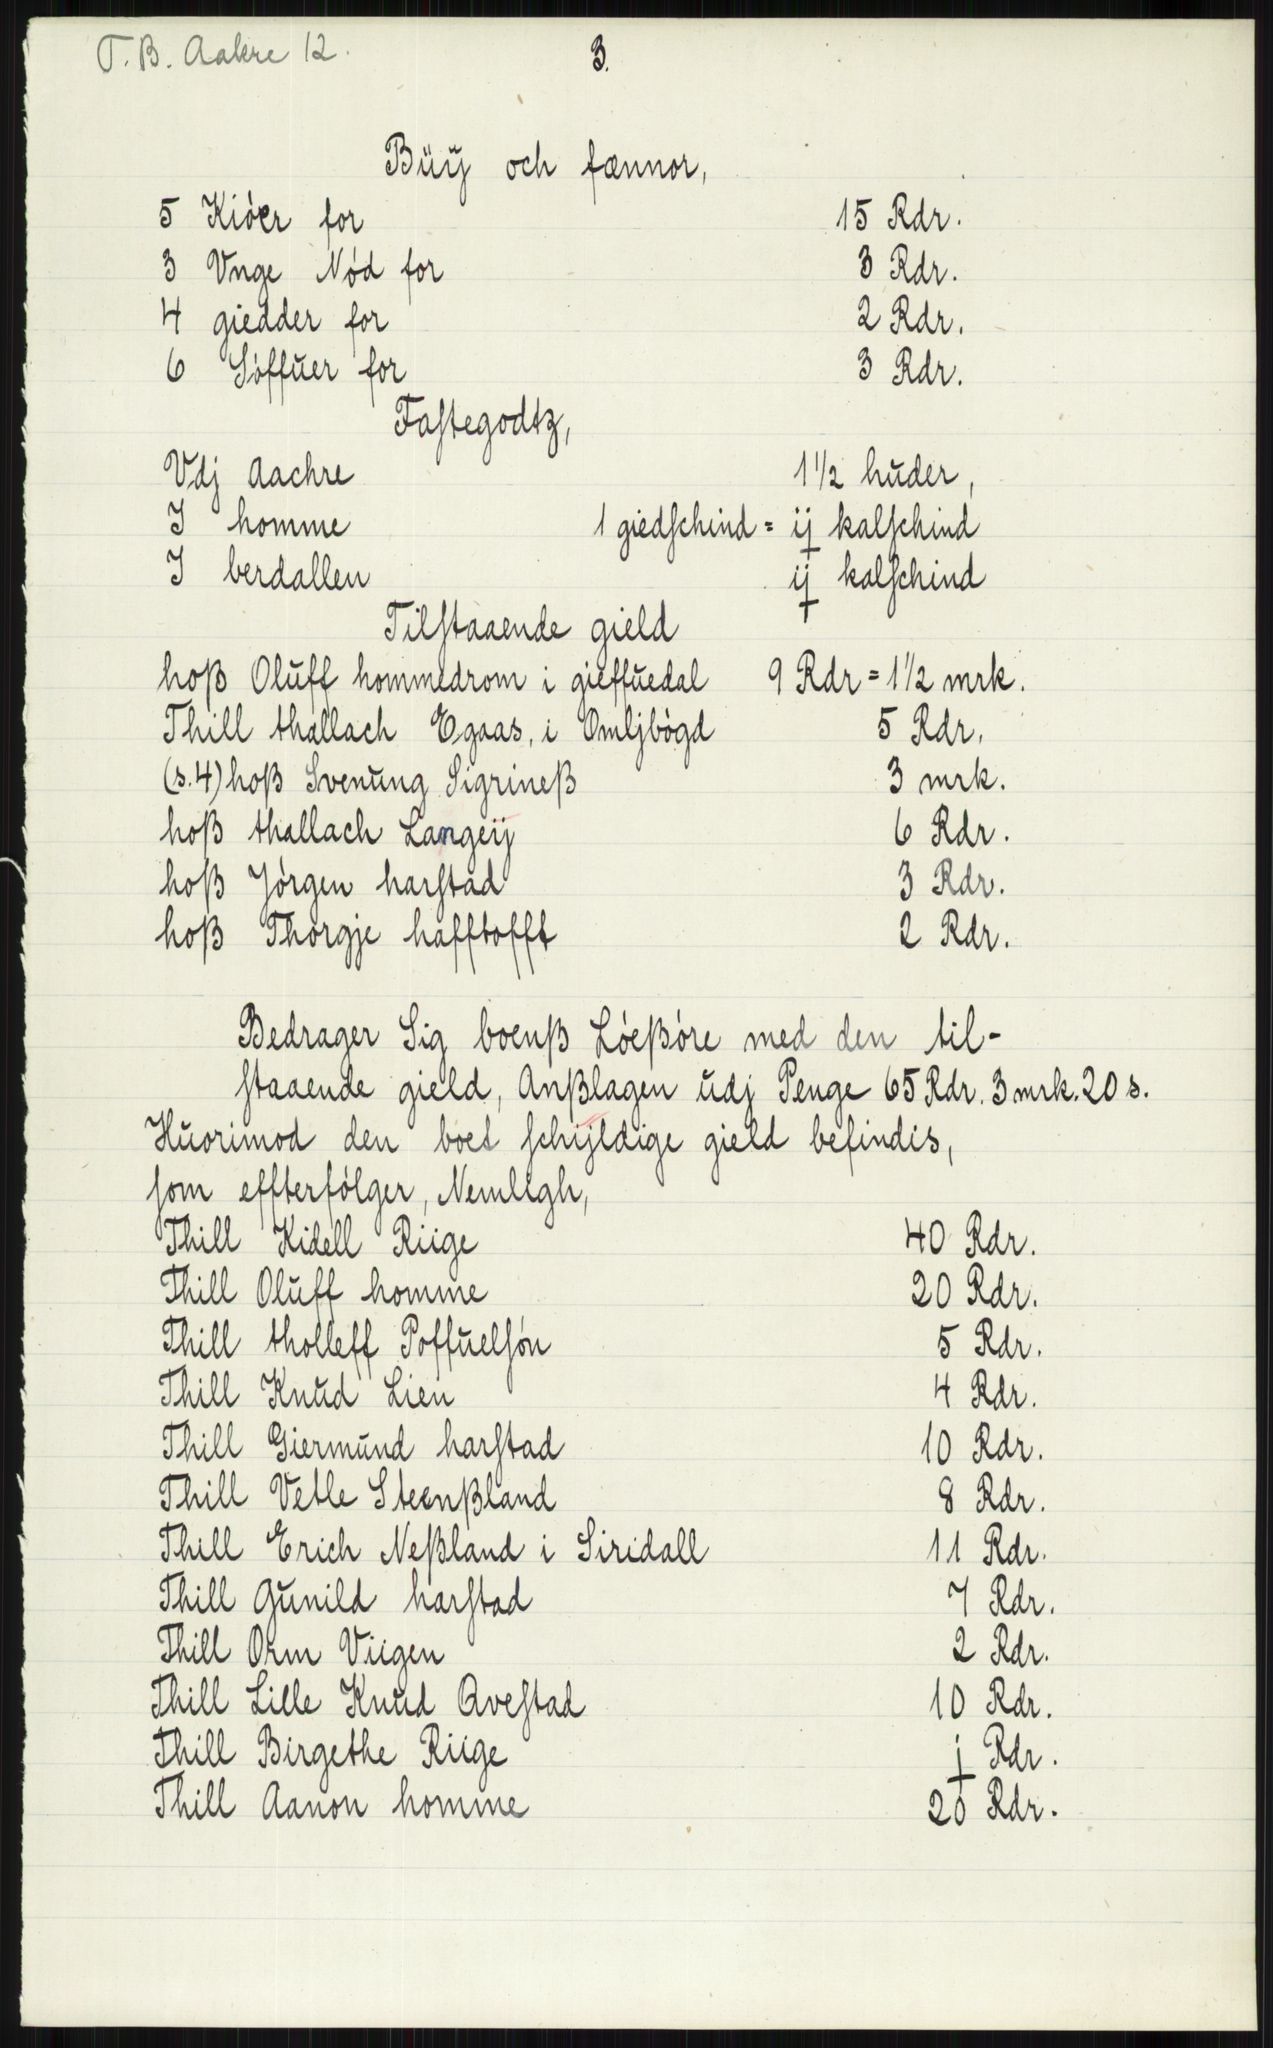 T. B. Aakre 12.
3.
Büÿ och fænnor,
5 Kiöer for 15 Rdr.
3 Vnge Nød for 3 Rdr.
4 giedder for 2 Rdr.
6 Söffuer for 3 Rdr.
Fastegodtz,
Vdj Aachre 1 1/2 huder,
I homme 1 giedschind = ij kalschind
I berdallen ij kalschind
Tilstaaende gield
hoß Oluff hommedrom i gieffuedal 9 Rdr = 1 1/2 mrk.
Thill thallach Egaas, i Omljbögd 5 Rdr.
(s. 4) hoß Svenung Sigrineß 3 mrk.
hoß thallach Langeij 6 Rdr.
hoß Jörgen harstad 3 Rdr.
hoß Thorgje hafftofft 2 Rdr.
Bedrager Sig boenß Löeßöre med den til-
staaende gield, Anßlagen udj Penge 65 Rdr. 3 mrk. 20 s.
Huorimod den boet schijldige gield befindis,
som effterfölger, Nemligh,
Thill Kidell Riige 40 Rdr.
Thill Oluff homme 20 Rdr.
Thill tholleff Poffuelsön 5 Rdr.
Thill Knud Lien 4 Rdr.
Thill Giermund harstad 10 Rdr.
Thill Vetle Steenßland 8 Rdr.
Thill Erich Neßland i Siridall 11 Rdr.
Thill Gunild harstad 7 Rdr.
Thill Orm Viigen 2 Rdr.
Thill Lille Knud Avestad 10 Rdr.
Thill Birgethe Riige j Rdr.
Thill Aanon homme 20 Rdr.